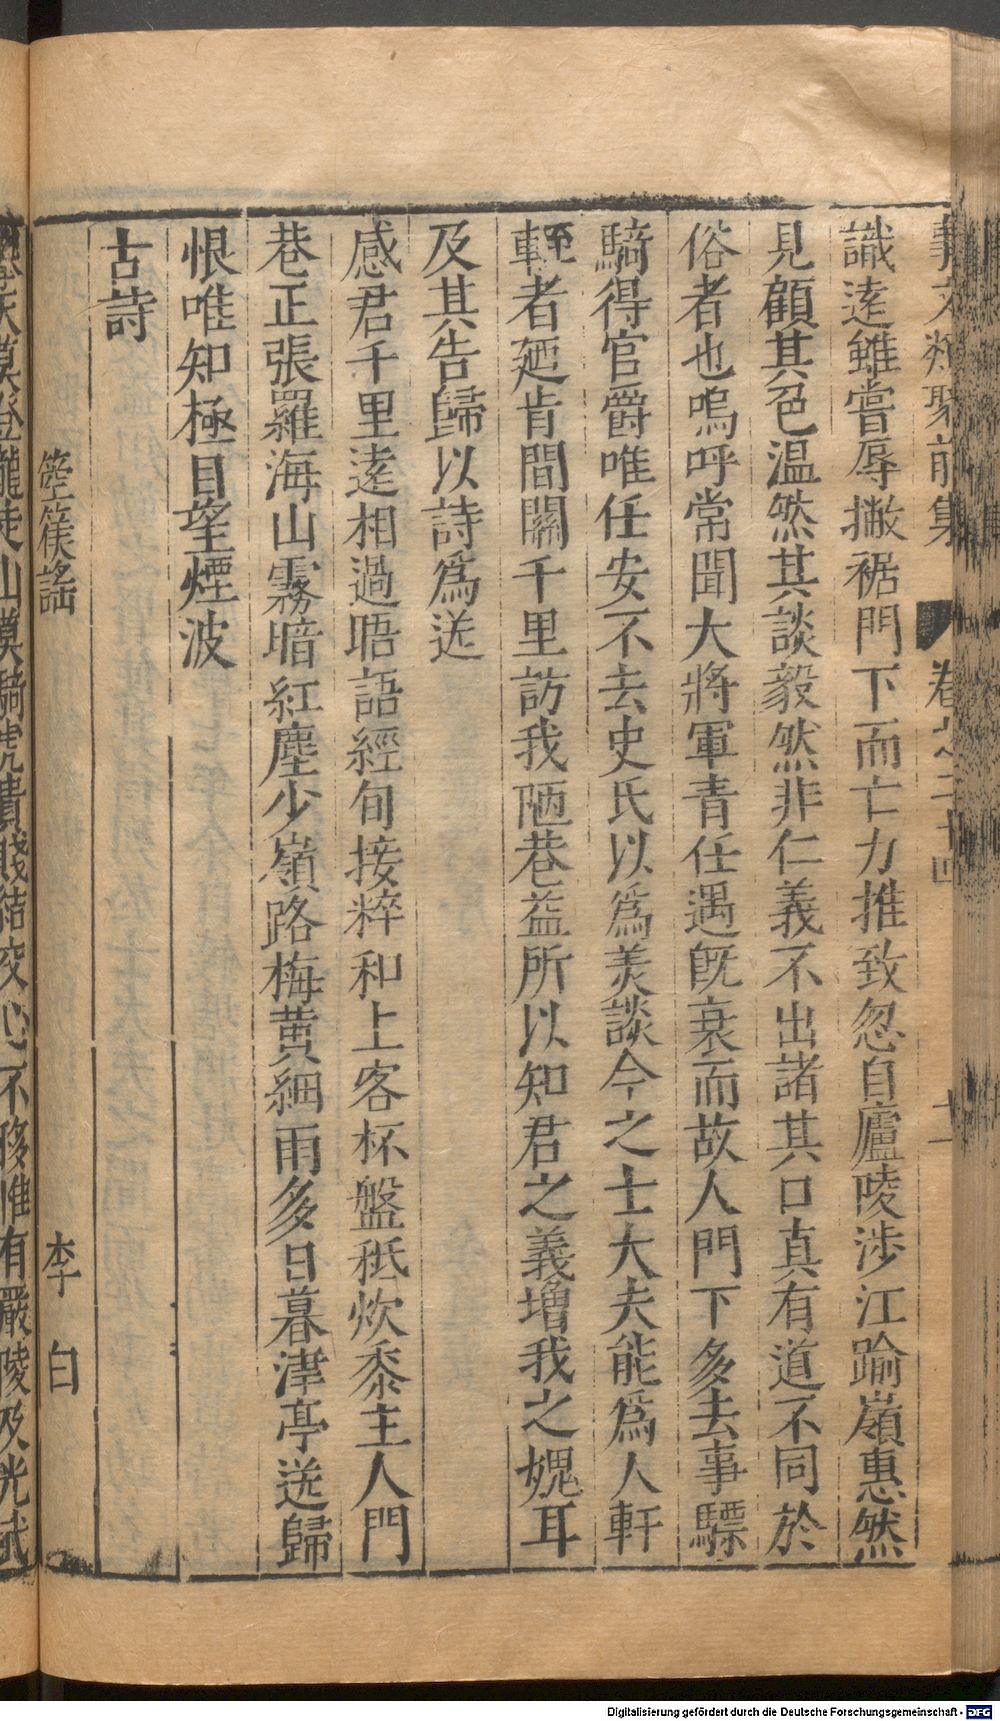 事文類聚前集 卷之二十四 十一
識逵雖嘗辱撇裾門下而亡力推致忽自廬陵涉江踰嶺惠然
見顧其色温然其談毅然非仁義不出諸其口真有道不同於
俗者也嗚呼常聞大將軍青任遇旣衰而故人門下多去事驃
騎得官爵唯任安不去史氏以爲美談今之士大夫能爲人軒
輊者廼肯間關千里訪我陋巷益所以知君之義增我之媿耳
及其告歸以詩爲送
感君千里逺相過晤語經旬接粹和上客杯盤秪炊黍主人門
巷正張羅海山霧暗紅塵少嶺路梅黄細雨多日暮津亭送歸
恨唯知極目望煙波
古詩
箜篌謠 李白
攀天莫登龍走山莫騎虎貴賤結交心不移惟有嚴陵及光武
Digitalisierung gefördert durch die Deutsche Forschungsgemeinschaft - DFG